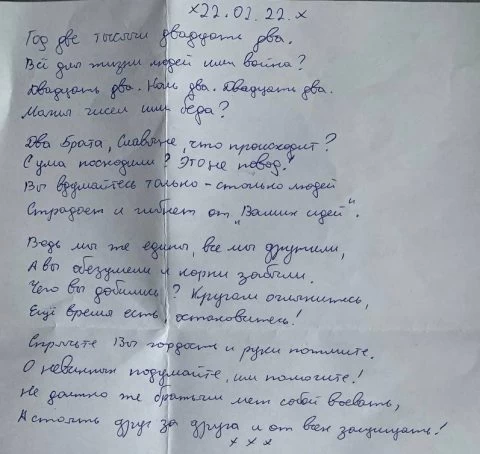 ×22.02.22.×
Год две тысячи двадцать два.
Всё для жизни людей или война?
Двадцать два. Ноль два. Двадцать два.
Магия чисел или беда?
Два брата, Славяне, что происходит?
С ума посходили? Это не повод!
Вы вдумайтесь только - столько людей
Страдает и гибнет от "Ваших идей".
Ведь мы же едины, все мы дружили,
А вы обезумели и корни забыли.
Чего вы добились? Кругом оглянитесь,
Ещё время есть, остановитесь!
Спрячьте Вы гордость и руки пожмите.
О невинных подумайте, им помогите!
Не должно же братьям меж собой воевать,
А стоять друг за друга и от всех защищать!
× × ×